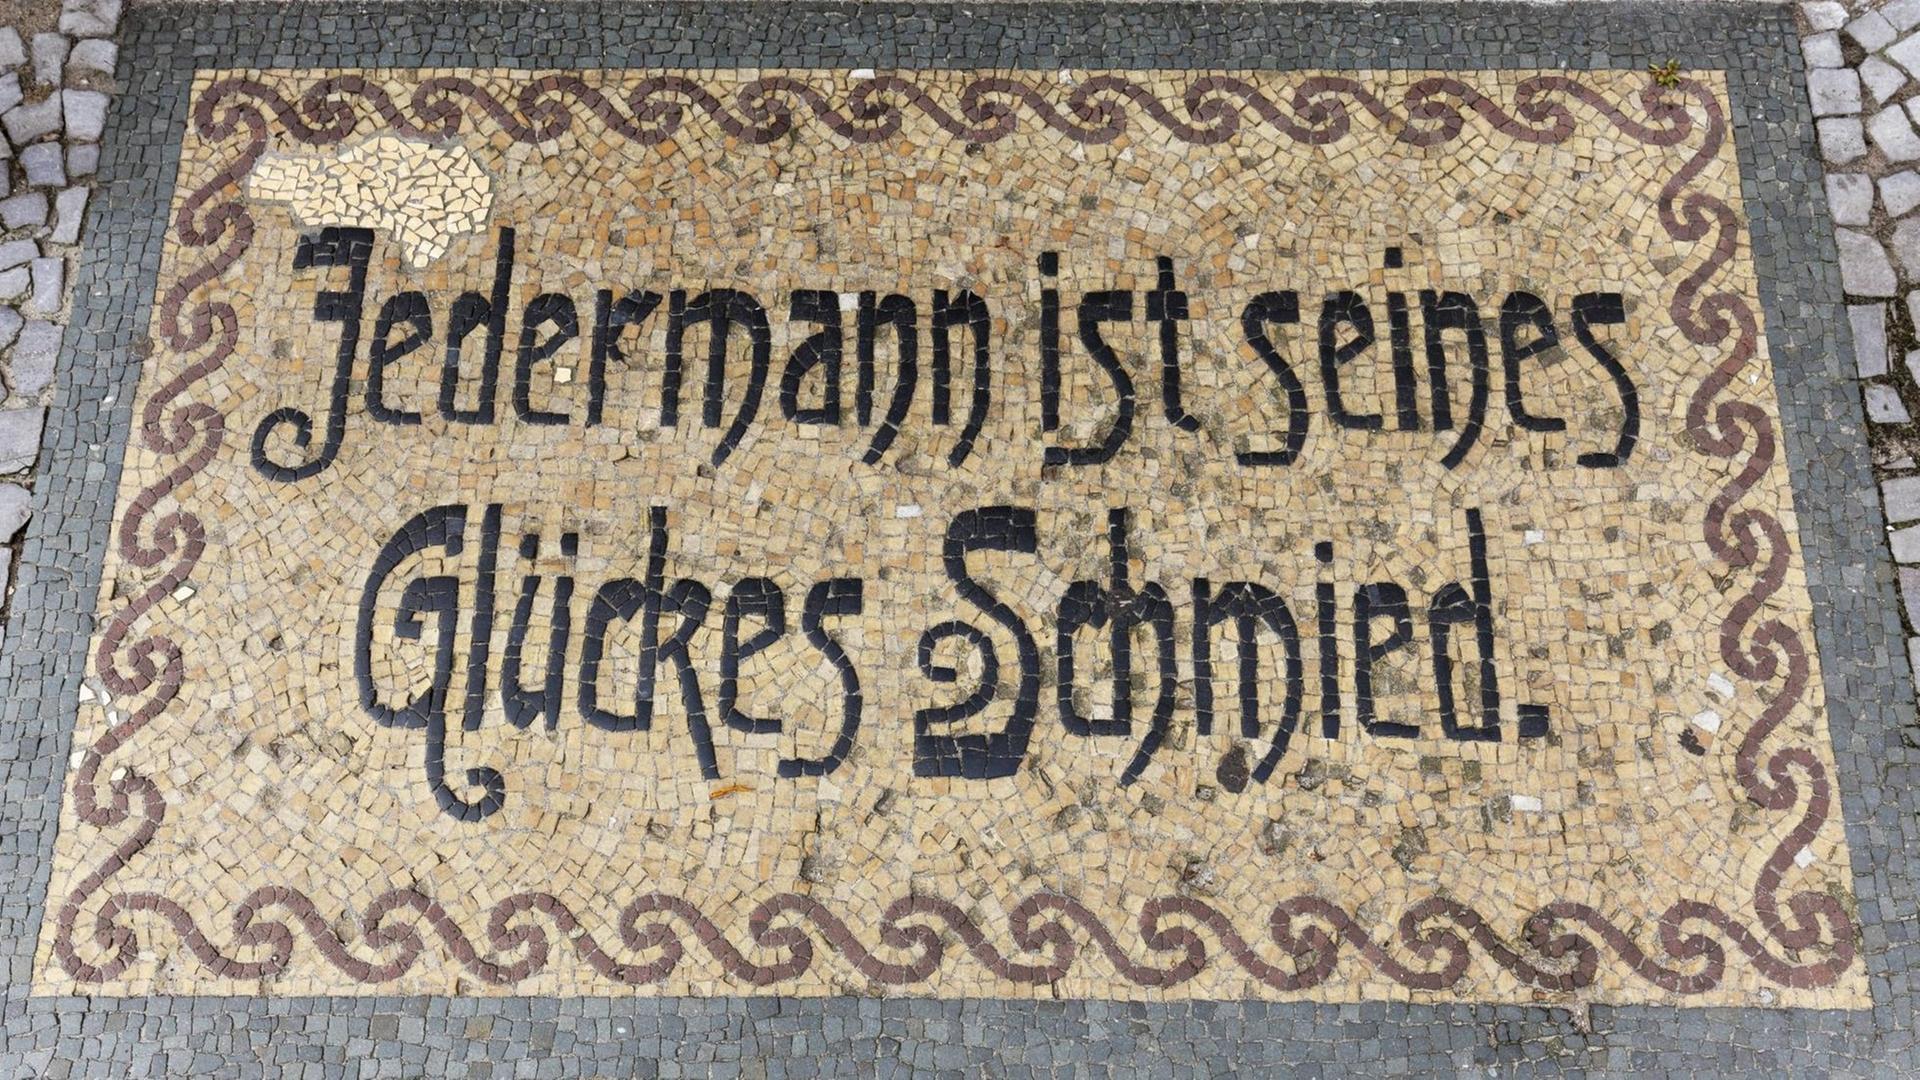 Jedermann ist seines
Glückes Schmied.